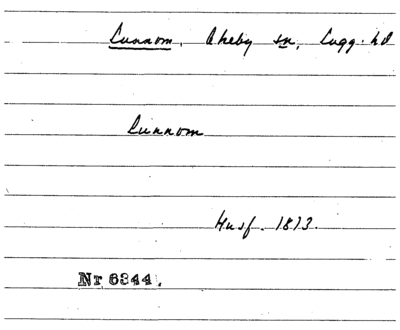 Lunnom, Åkeby sn, Lugg. hd
Lunnom
Husf. 1813.
Nr 6344.